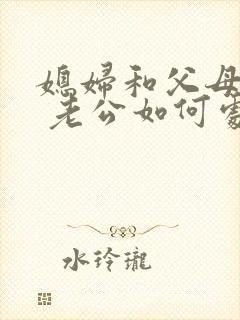 媳婦和父母
老公如何處
水玲瓏